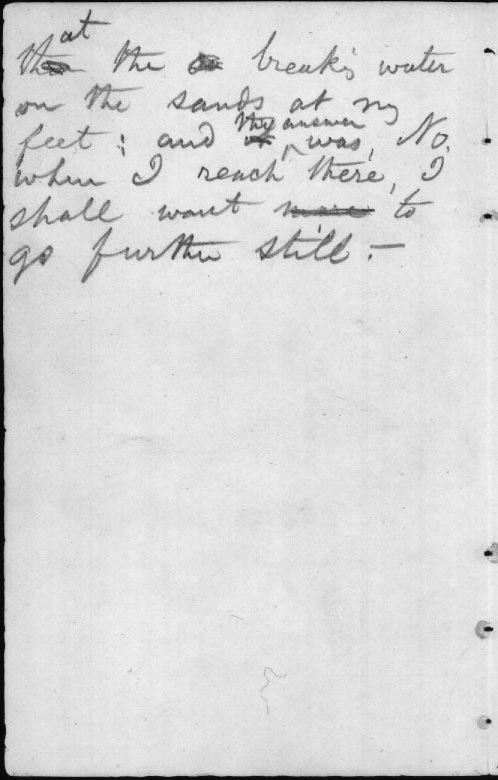 that the break's water
on the sands at my
feet; and the answer was, No,
when I reach there, I
shall want more to
go further still.—